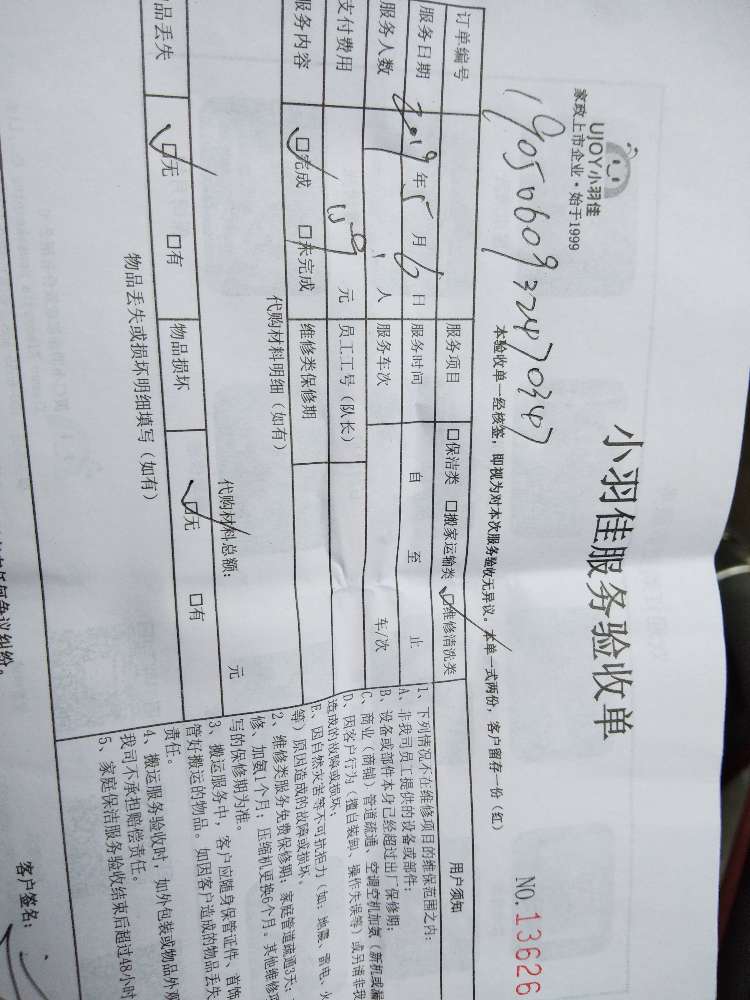 小羽佳服务验收单
UJOY小羽佳
家政上市企业·始于1999
NO.13626
本验收单一经核签，即视为对本次服务验收无异议。本单一式两份，客户留存一份（红）
订单编号 19050609324870347
服务项目 □保洁类 □搬家运输类 □维修清洗类
服务日期 2019年5月6日
服务时间 自 至 止
服务人数 1人
服务车次 车/次
支付费用 元
员工工号（队长）
服务内容 □完成 □未完成
维修类保修期
代购材料明细（如有）
代购材料总额： 元
品丢失 □无 □有
物品损坏 □无 □有
物品丢失或损坏明细填写（如有）
用户须知
1、下列情况不在维修项目的维保范围之内：
A、非我司员工提供的设备或部件；
B、设备或部件本身已经超过出厂保修期；
C、商业（商铺）管道疏通、空调空机加氨（新机或漏
D、因客户行为（擅自装卸、操作失误等）或另请非我
造成的故障或损坏；
E、因自然灾害等不可抗拒力（如：地震、雷电、火
等）原因造成的故障或损坏。
2、维修类服务免费保修期：家庭管道疏通3天；
修、加氨1个月；压缩机更换6个月。其他维修项
写的保修期为准。
3、搬运服务中，客户应随身保管证件、首饰
管好搬运的物品。如因客户造成的物品丢失
责任。
4、搬运服务验收时，如外包装或物品外观
我司不承担赔偿责任。
5、家庭保洁服务验收结束后超过48小时
任何争议纠纷。
客户签名：